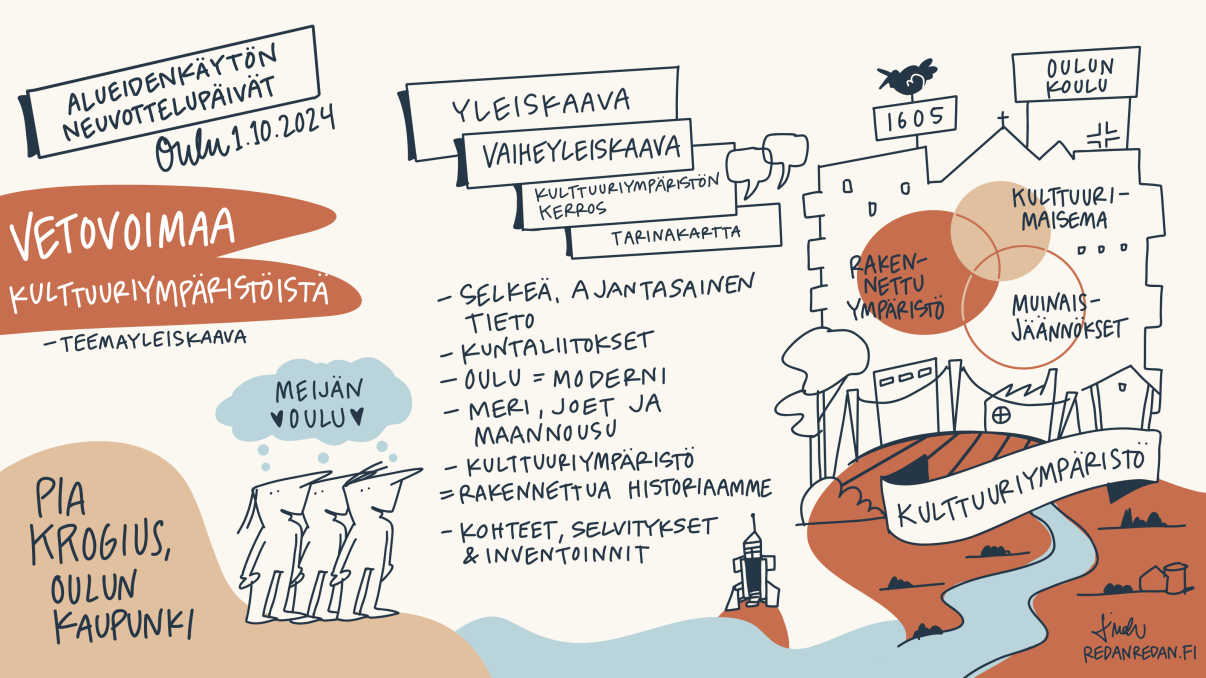 ALUEIDENKÄYTÖN
NEUVOTTELUPÄIVÄT
Oulu 1.10.2024
VETOVOIMAA
KULTTUURIYMPÄRISTÖISTÄ
– TEEMAYLEISKAAVA
MEIJÄN
♥OULU♥
PIA
KROGIUS,
OULUN
KAUPUNKI
YLEISKAAVA
VAIHEYLEISKAAVA
KULTTUURIYMPÄRISTÖN
KERROS
TARINAKARTTA
– SELKEÄ, AJANTASAINEN
TIETO
– KUNTALIITOKSET
– OULU = MODERNI
– MERI, JOET JA
MAANNOUSU
– KULTTUURIYMPÄRISTÖ
= RAKENNETTUA HISTORIAAMME
– KOHTEET, SELVITYKSET
& INVENTOINNIT
1605
OULUN
KOULU
KULTTUURI–
MAISEMA
RAKEN–
NETTU
YMPÄRISTÖ
MUINAIS–
JÄÄNNÖKSET
KULTTUURIYMPÄRISTÖ
REDANREDAN.FI